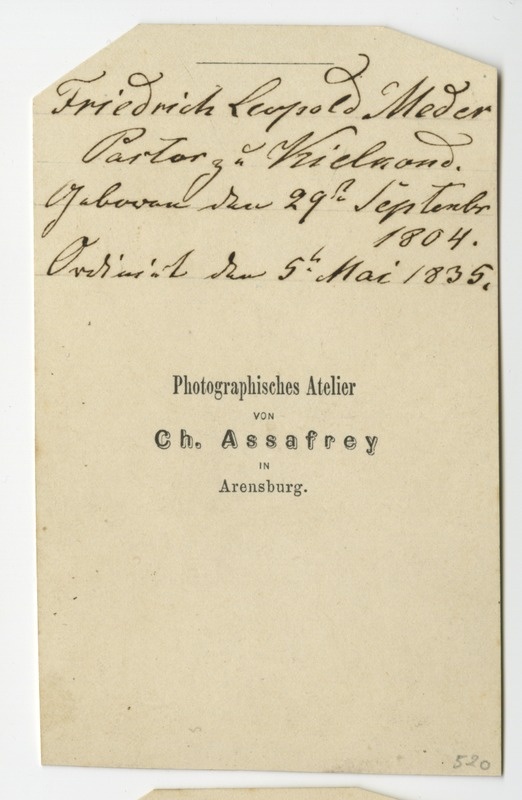 Friedrich Leopold Meder
Pastor zu Kielkond.
Geboren den 29t Septembr
1804.
Ordinirt den 5t. Mai 1835.
Photographisches Atelier
VON
Ch. Assafrey
IN
Arensburg.
520